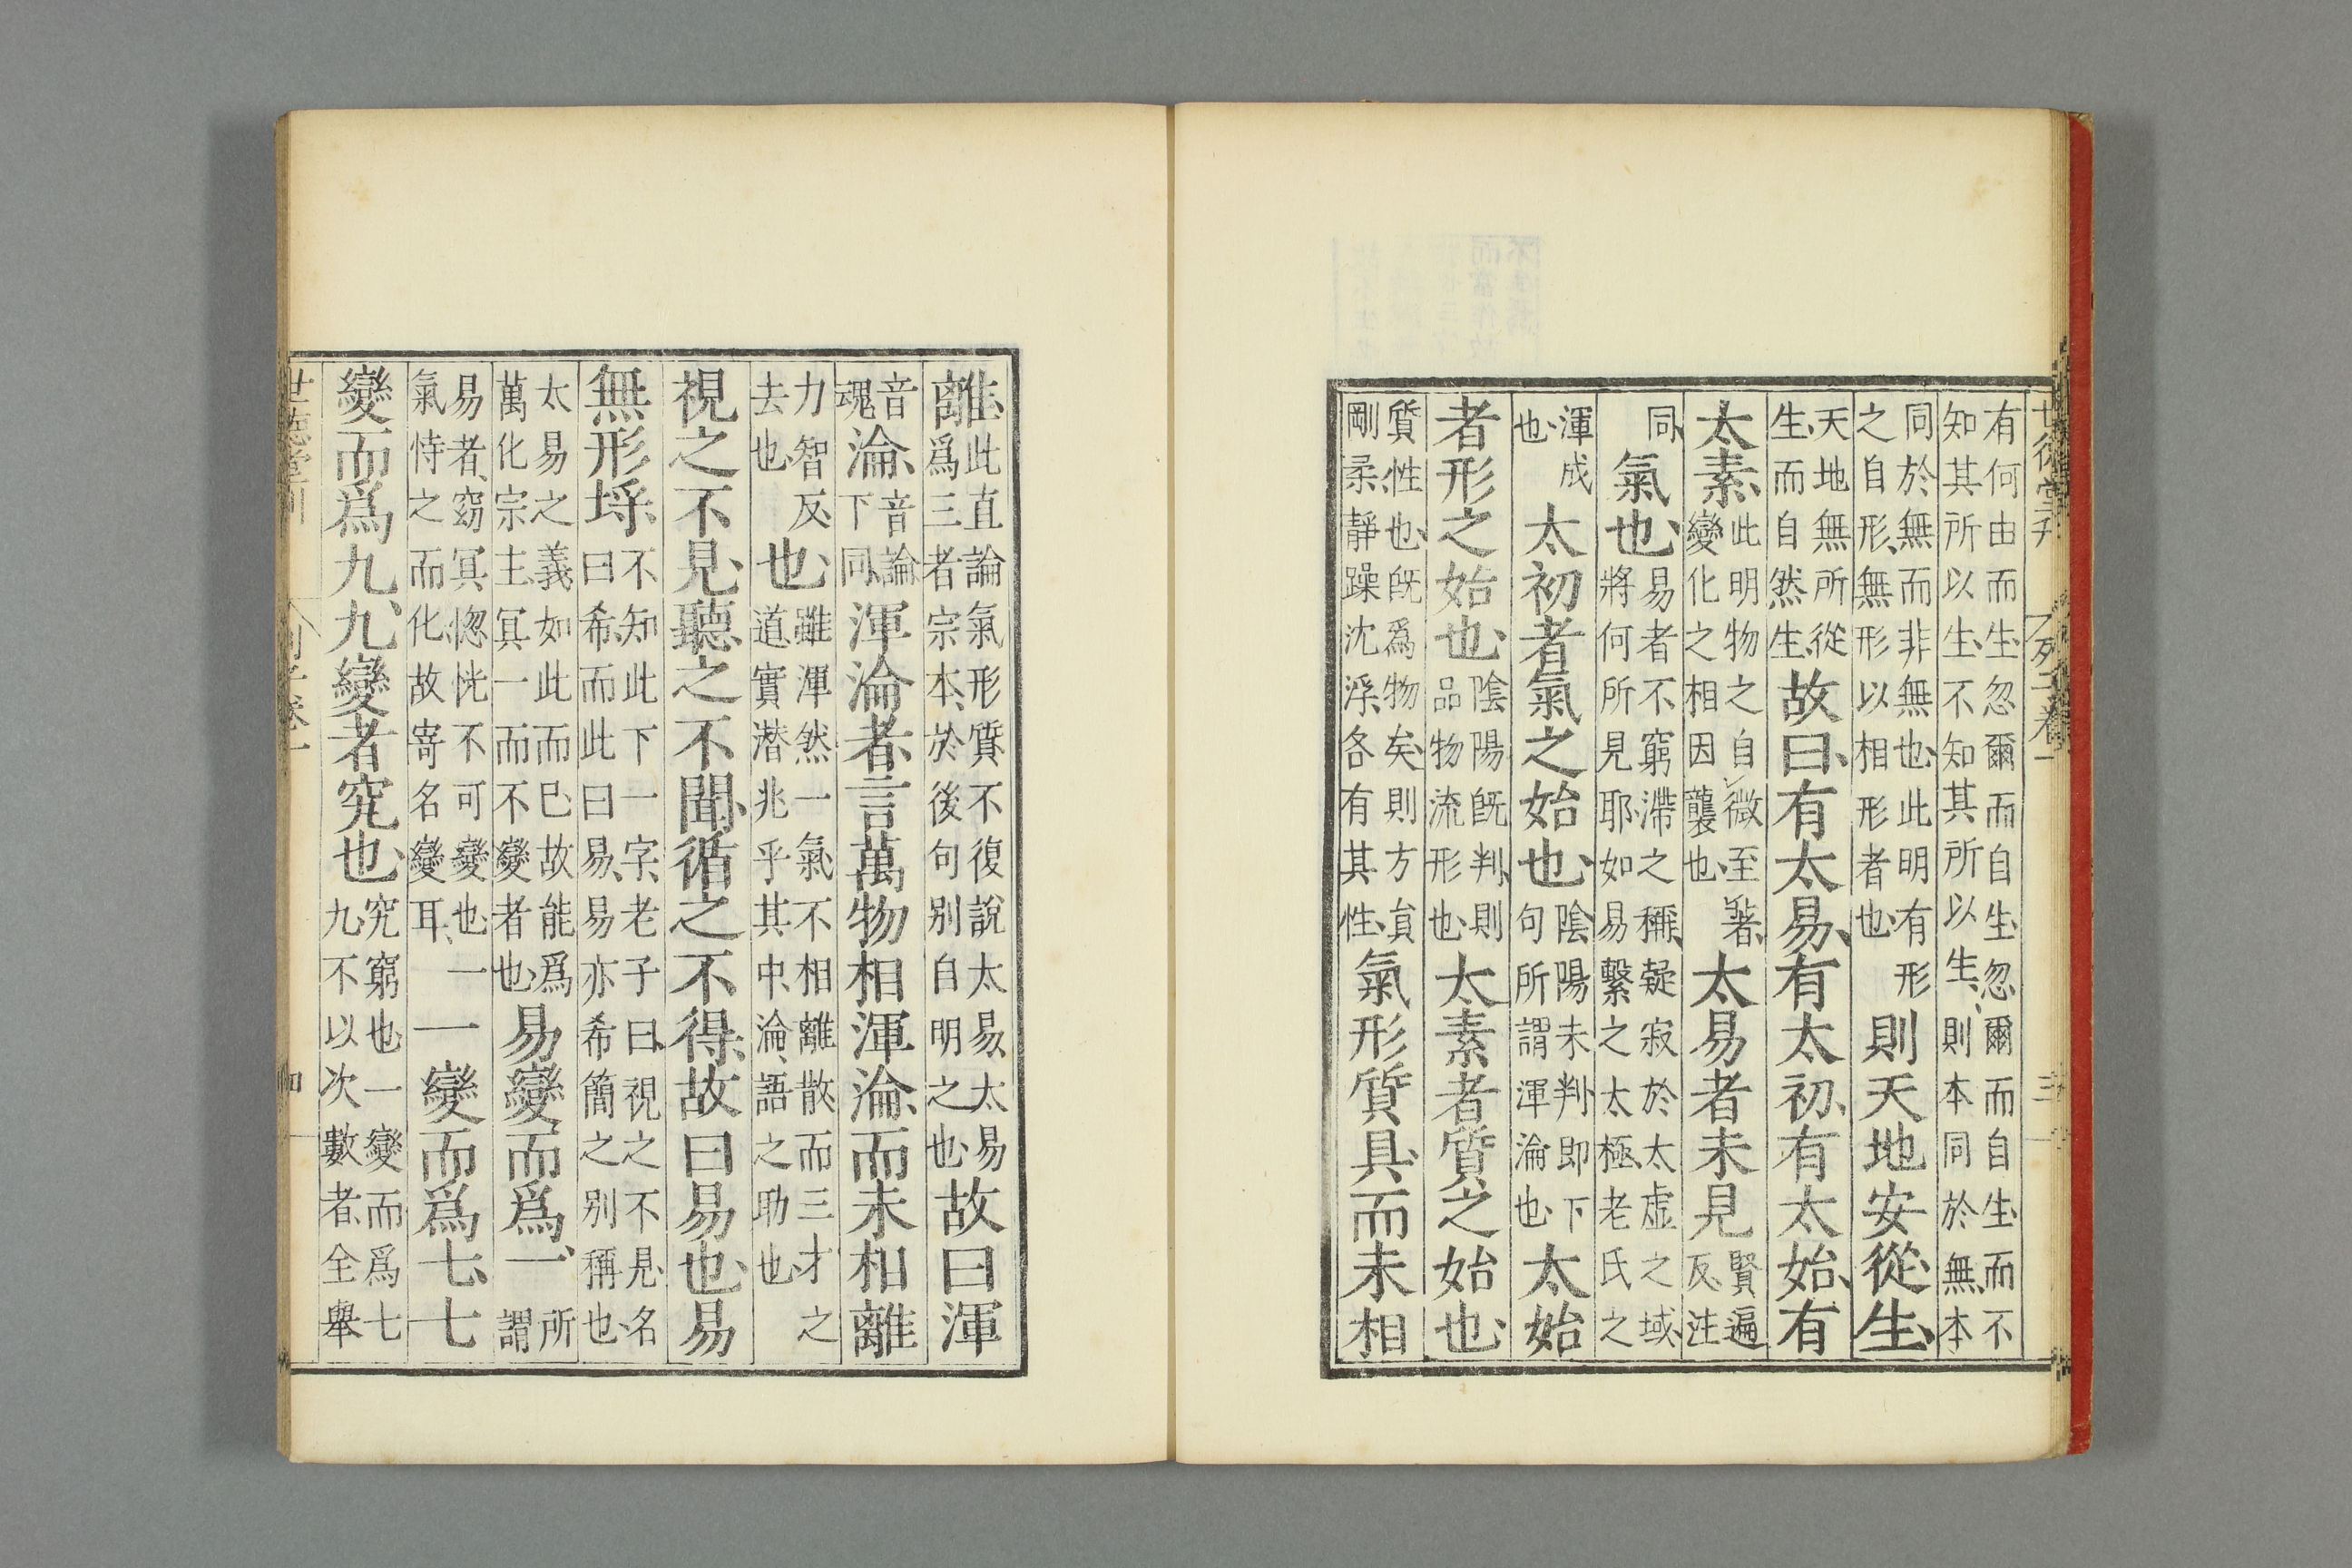 世德堂刊 列子卷一 三
有何由而生忽爾而自生忽爾而自生而不
知其所以生不知其所以生則本同於無本
同於無而非無也此明有形之自形無形以相形者也則天地安從生
天地無所從生而自然生故曰有太易有太初有太始有
太素此明物之自微至著變化之相因襲也太易者未見賢遍反注
同氣也易者不窮滯之稱凝寂於太虛之域將何所見耶如易繫之太極老氏之
渾成也太初者氣之始也陰陽未判即下句所謂渾淪也太始
者形之始也陰陽既判則品物流形也太素者質之始也
質性也既爲物矣則方員剛柔靜躁沈浮各有其性氣形質具而未相
離此直論氣形質不復說太易太易爲三者宗本於後句別自明之也故曰渾
音魂淪音論下同渾淪者言萬物相渾淪而未相離
力智反去也也雖渾然一氣不相離散而三才之道實潛兆乎其中淪語之助也
視之不見聽之不聞循之不得故曰易也易
無形埒不知此下一字老子曰視之不見名曰希而此曰易易亦希簡之別稱也
太易之義如此而已故能爲萬化宗主冥一而不變者也易變而爲一所謂
易者窈冥惚恍不可變也一氣恃之而化故寄名變耳一變而爲七七
變而爲九九變者究也究窮也一變而爲七九不以次數者全舉
世德堂刊 列子卷一 四